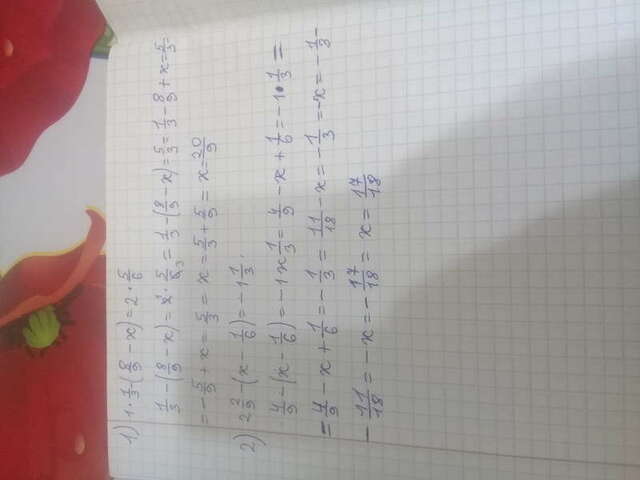 1) 1·1/3-(8/9-x)=2·5/6
1/3-(8/9-x)=2·5/6₃=1/3-(8/9-x)=5/3=1/3-8/9+x=5/3-
=-5/9+x=5/3=x=5/3+5/9=x=20/9
2) 2 2/9-(x-1/6)=-1 1/3.
4/9-(x-1/6)=-1x1/3=4/9-x+1/6=-1·1/3=
=4/9-x+1/6=-1/3=11/18-x=-1/3=-x=-1/3-
-11/18=-x=-17/18=x=17/18